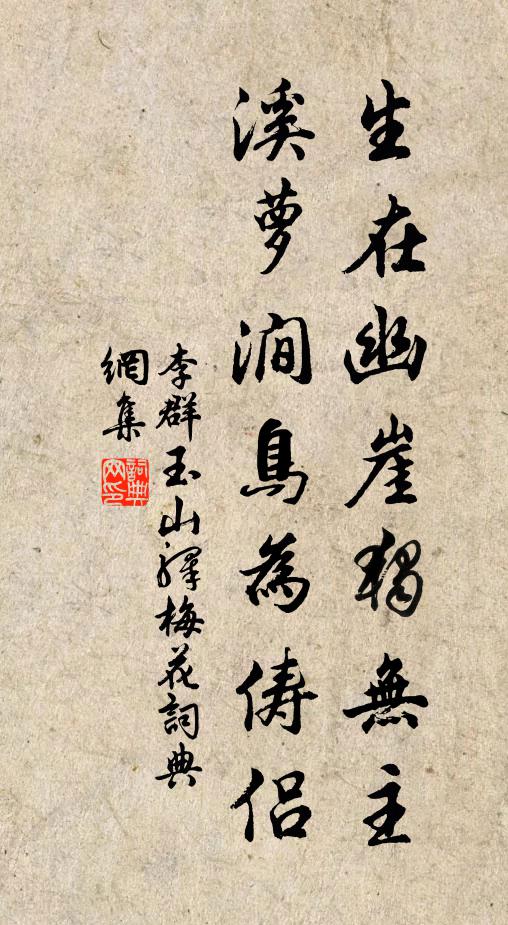 生在幽崖獨無主
溪蘿澗鳥為儔侶
李群玉山驛梅花詞典
網集
詞典網印